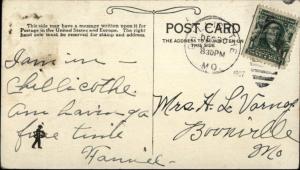 This side may have a message written upon it for
Postage in the United States and Europe. The right
hand now must be reserved for stamp and address.
POST CARD
THE ADDRESS TO BE WRITTEN ON
THIS SIDE
830PM
MO.
1907
I am in
Chillicothe.
am having a
fine time
Fannie.
Mrs. H. L. Varney
Boonville
Mo